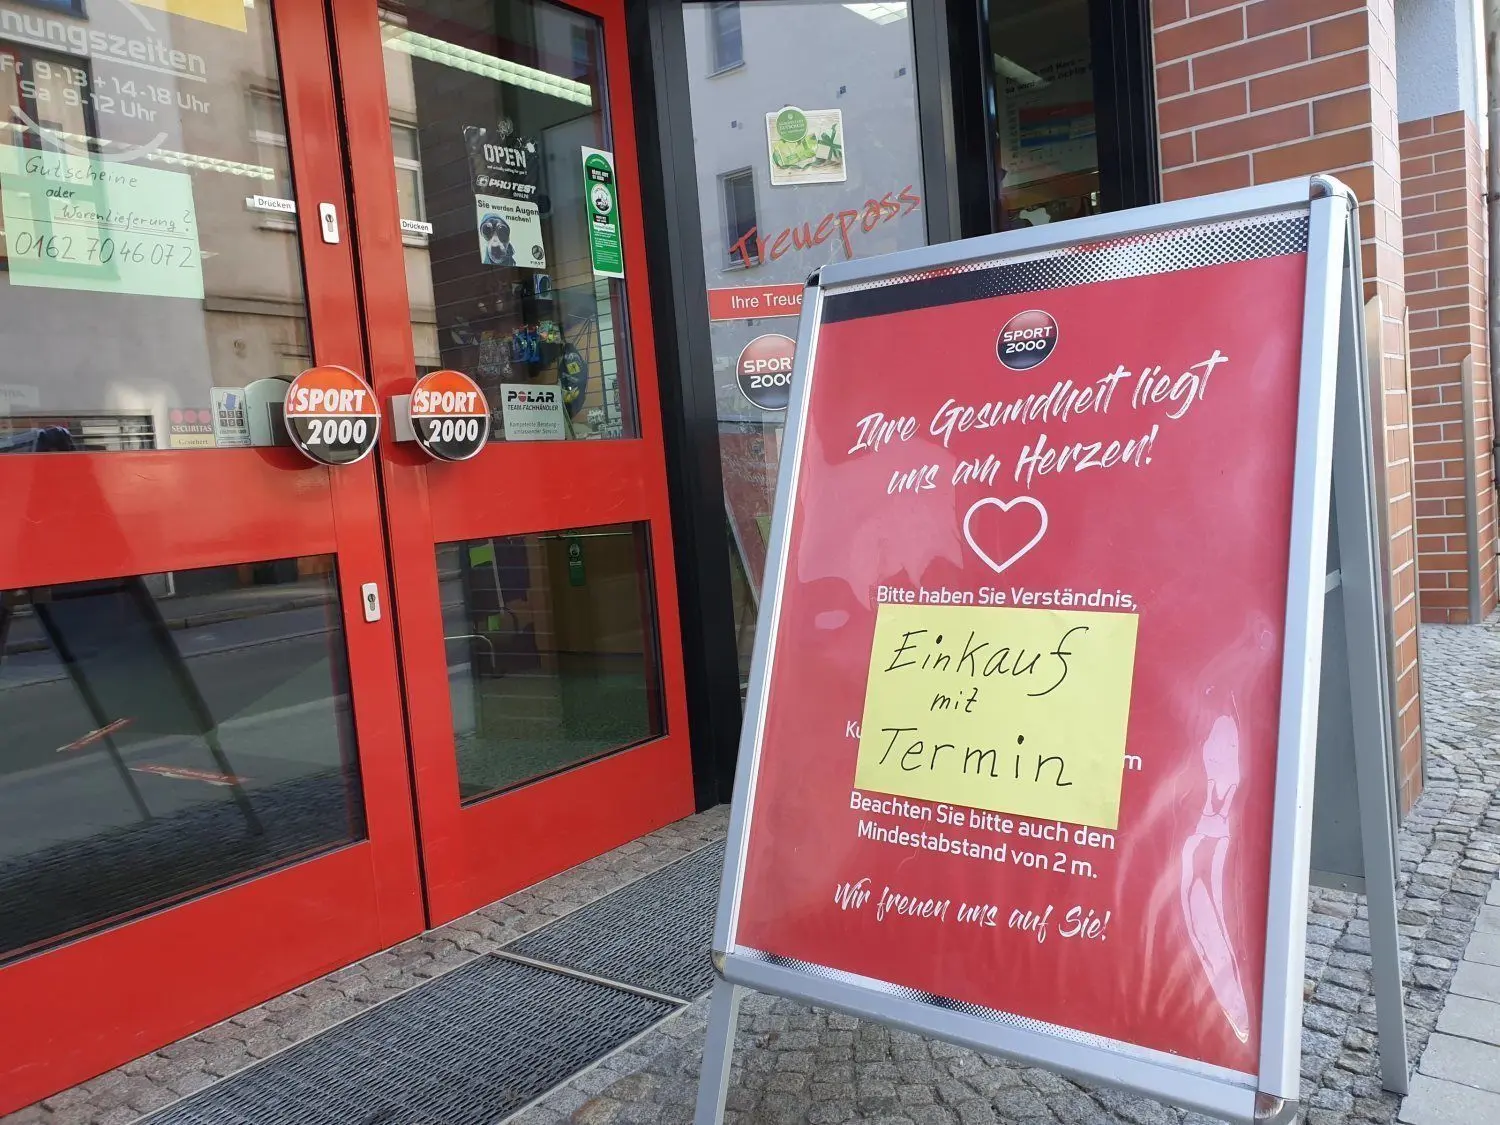 nungszeiten
Fr 9-13 + 14-18 Uhr
Sa 9-12 Uhr
Gutscheine
oder
Warenlieferung?
0162 7046072
Drücken
Drücken
OPEN
PROTEST
Sie werden Augen
machen!
SPORT
2000
SPORT
2000
SECURITAS
POLAR
TEAM-FACHHÄNDLER
Kompetente Beratung -
umfassender Service.
Treuepass
Ihre Treue
SPORT
2000
SPORT
2000
Ihre Gesundheit liegt
uns am Herzen!
Bitte haben Sie Verständnis,
Einkauf
mit
Termin
Ku
m
Beachten Sie bitte auch den
Mindestabstand von 2 m.
Wir freuen uns auf Sie!